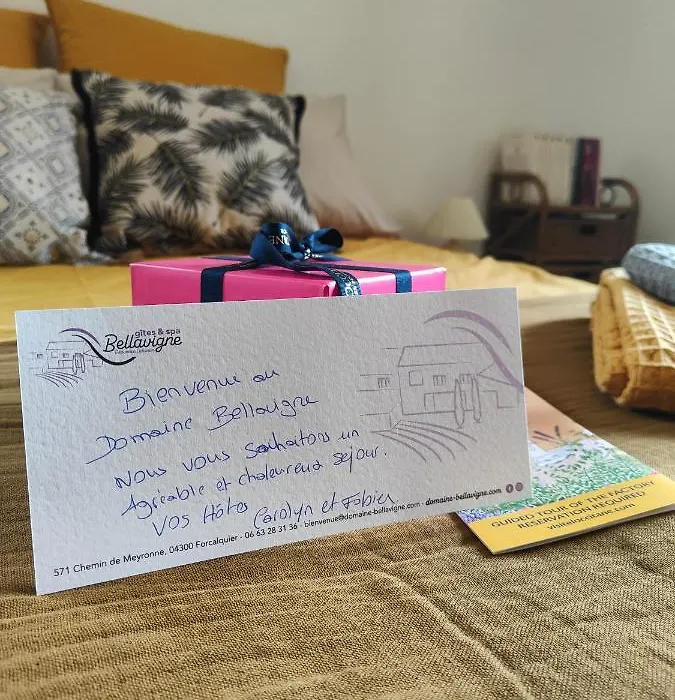 gîtes & spa
Bellavigne
Bienvenue au
Domaine Bellavigne
Nous vous souhaitons un
Agréable et chaleureux séjour.
Vos Hôtes Carolyn et Fabien
571 Chemin de Meyronne, 04300 Forcalquier - 06 63 28 31 36 - bienvenue@domaine-bellavigne.com - domaine-bellavigne.com
GUIDED TOUR OF THE FACTORY
RESERVATION REQUIRED